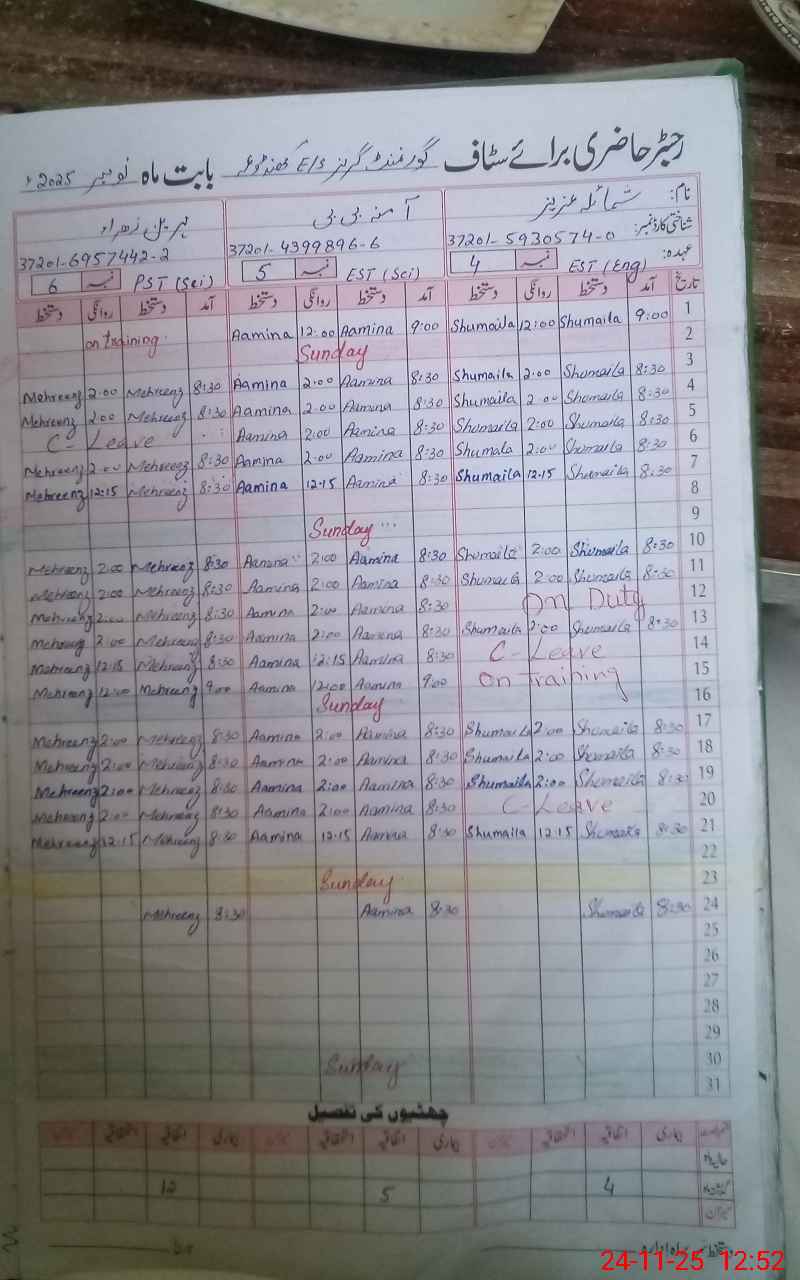 رجسٹر حاضری برائے سٹاف گورنمنٹ گرلز E/S بابت ماہ نومبر 2025ء
نام: شمائلہ عزیز آمنہ بی بی
شناختی کارڈ نمبر: 37201-5930574-0 37201-4399896-6 37201-6957442-2
عہدہ: EST (Eng) نمبر 4 EST (Sci) نمبر 5 PST (Sci) نمبر 6
تاریخ آمد دستخط روانگی دستخط آمد دستخط روانگی دستخط آمد دستخط روانگی دستخط
on training Aamina 12:00 Aamina 9:00 Shumaila 12:00 Shumaila 9:00 1
Sunday 2
Mehreenz 2:00 Mehreenz 8:30 Aamina 2:00 Aamina 8:30 Shumaila 2:00 Shumaila 8:30 3
Mehreenz 2:00 Mehreenz 8:30 Aamina 2:00 Aamina 8:30 Shumaila 2:00 Shumaila 8:30 4
C-Leave Aamina 2:00 Aamina 8:30 Shumaila 2:00 Shumaila 8:30 5
Mehreenz 2:00 Mehreenz 8:30 Aamina 2:00 Aamina 8:30 Shumala 2:00 Shumaila 8:30 6
Mehreenz 12:15 Mehreenz 8:30 Aamina 12:15 Aamina 8:30 Shumaila 12:15 Shumaila 8:30 7
8
Sunday 9
Mehreenz 2:00 Mehreenz 8:30 Aamina 2:00 Aamina 8:30 Shumaila 2:00 Shumaila 8:30 10
Mehreenz 2:00 Mehreenz 8:30 Aamina 2:00 Aamina 8:30 Shumaila 2:00 Shumaila 8:30 11
Mehreenz 2:00 Mehreenz 8:30 Aamina 2:00 Aamina 8:30 On Duty 12
Mehreenz 2:00 Mehreenz 8:30 Aamina 2:00 Aamina 8:30 Shumaila 2:00 Shumaila 8:30 13
Mehreenz 12:15 Mehreenz 8:30 Aamina 12:15 Aamina 8:30 C-Leave 14
Mehreenz 12:00 Mehreenz 9:00 Aamina 12:00 Aamina 9:00 On training 15
Sunday 16
Mehreenz 2:00 Mehreenz 8:30 Aamina 2:00 Aamina 8:30 Shumaila 2:00 Shumaila 8:30 17
Mehreenz 2:00 Mehreenz 8:30 Aamina 2:00 Aamina 8:30 Shumaila 2:00 Shumaila 8:30 18
Mehreenz 2:00 Mehreenz 8:30 Aamina 2:00 Aamina 8:30 Shumaila 2:00 Shumaila 8:30 19
Mehreenz 2:00 Mehreenz 8:30 Aamina 2:00 Aamina 8:30 C-Leave 20
Mehreenz 12:15 Mehreenz 8:30 Aamina 12:15 Aamina 8:30 Shumaila 12:15 Shumaila 8:30 21
22
Sunday 23
Mehreenz 8:30 Aamina 8:30 Shumaila 8:30 24
25
26
27
28
29
Sunday 30
31
چھٹیوں کی تفصیل
بیماری اتفاقیہ استحقاقیہ میزان بیماری اتفاقیہ استحقاقیہ میزان بیماری اتفاقیہ استحقاقیہ میزان
12 5 4
میزان
دستخط سربراہ ادارہ
24-11-25 12:52